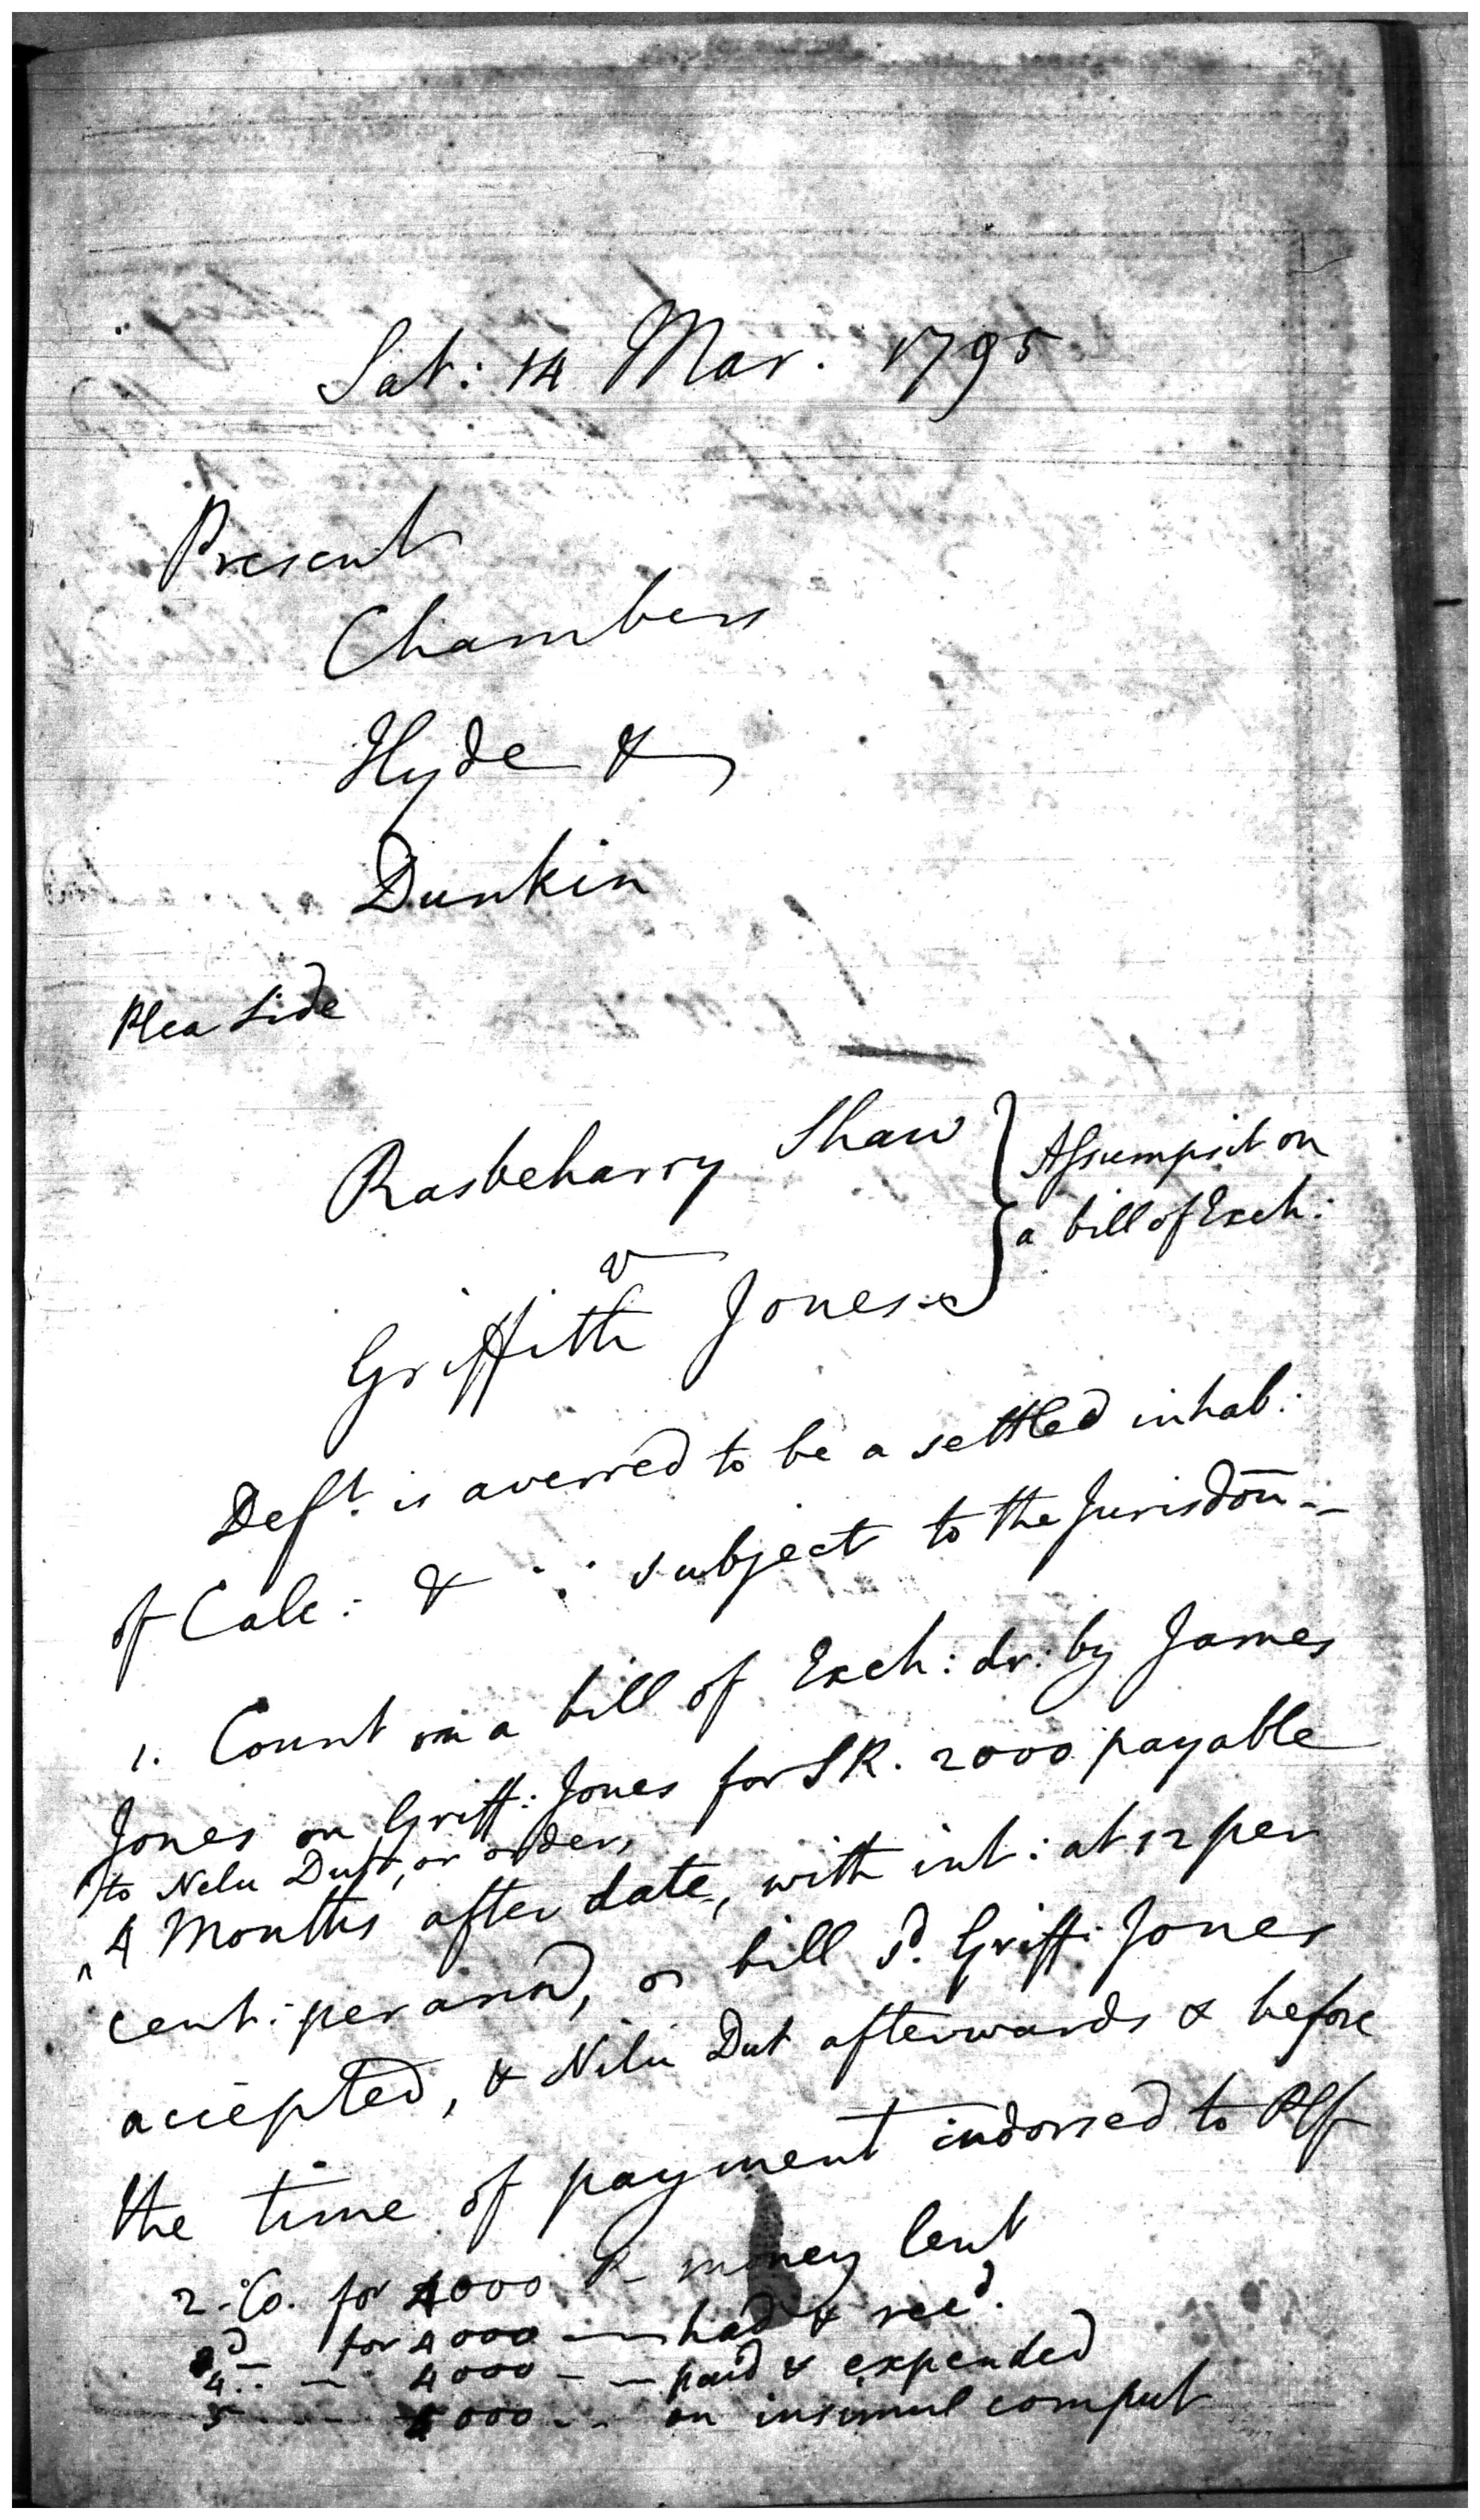 Sat: 14 Mar. 1795
Present
Chambers
Hyde &
Dunkin
Plea Side
Rasbeharry Shaw
v
Griffith Jones
Assumpsit on
a bill of Exch:
Deft. is averred to be a settled inhab:
of Calc: & ∵ subject to the Jurisdon
1. Count on a bill of Exch: dr: by James
Jones on Griff: Jones for SR. 2000 payable
to Nelu Dutt, or order,
4 Months after date, with int: at 12 per
cent: per ann, bill sd. Griff: Jones
accepted, & Nilu Dut afterwards & before
the time of payment indorsed to Plf
2. Co. for 4000 R money lent
3d for 4000 — had & recd.
4.. — 4000 — — paid & expended
5 4000 .. on insimul comput